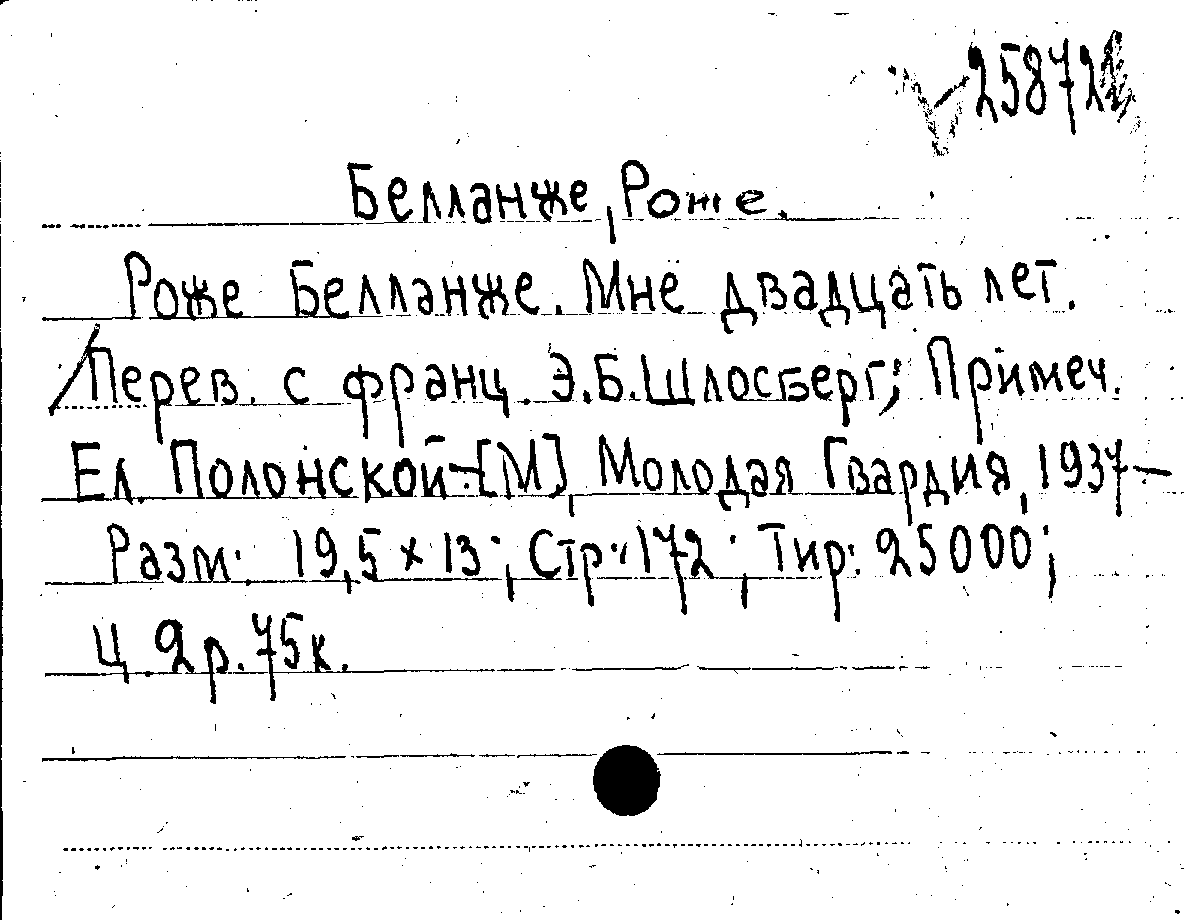 25872
Белланже, Роже.
Роже Белланже. Мне двадцать лет.
/Перев. с франц. Э.Б.Шлосберг; Примеч.
Ел. Полонской-[М], Молодая Гвардия, 1937—
Разм: 19,5 x 13; Стр: 172; Тир: 25000;
Ц. 2р. 75к.